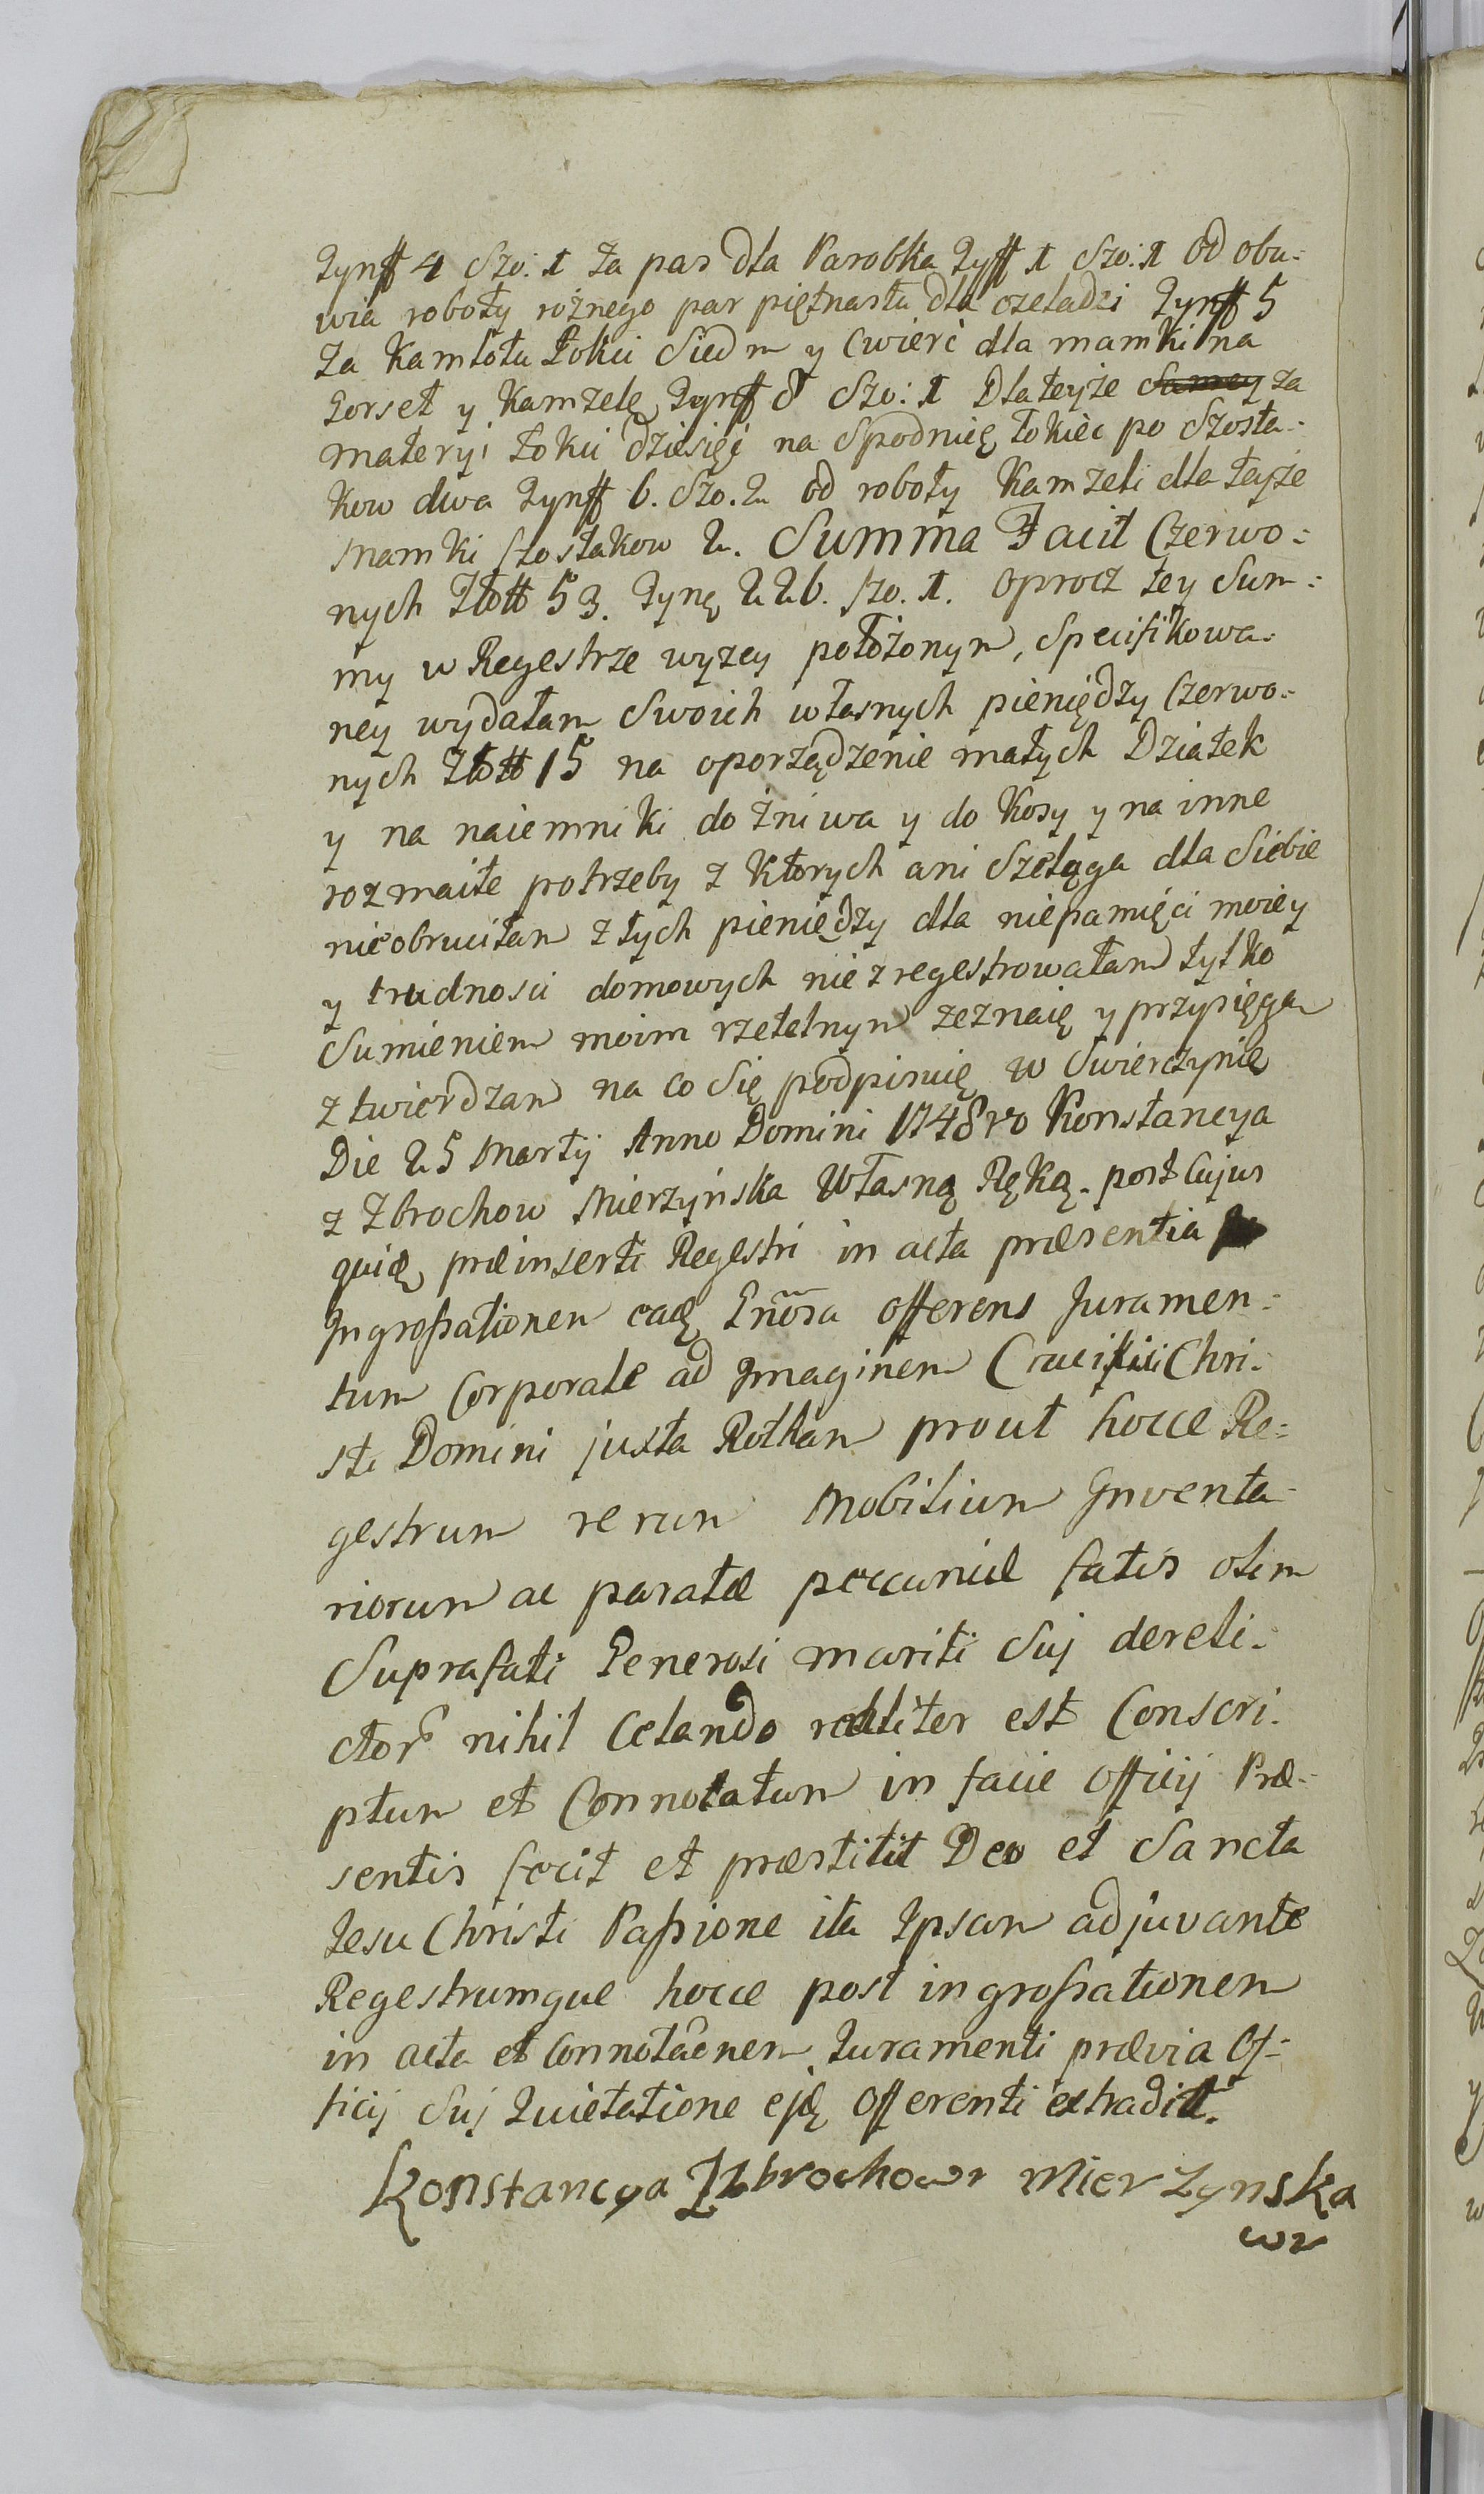 Tynff 4 Szo: 1 za pas dla Parobka Tyff 1 Szo: 1 od obu-
wia roboty rożnego par piętnastu dla czeladzi Tynff 5
za Kamlotu Łokci Siedm y Cwierć dla mamki na
Gorset y Kamzelę Tynff 8 Szo: 1 Dla teyże Samey za
materyi Łokci dziesięć na Spodnię łokiec po Szosta-
kow dwa Tynff 6. Szo. 2 od roboty Kamzeli dla tayże
mamki szostakow 2. Summa Facit Czerwo-
nych Złott 53. Tynę 226. szo. 1. oprocz tey Sum-
my w Regestrze wyzey położonym, Specifikowa-
ney wydałam Swoich własnych pieniędzy Czerwo-
nych Złott 15 na oporządzenie małych Dziatek
y na naiemniki do żniwa y do Kosy y na inne
rozmaite potrzeby z Ktorych ani Szeląga dla Siebie
nieobrucitam z tych pieniędzy dla niepamięci moiey
y trudnosci domowych nie zregestrowałam tylko
Sumieniem moim rzetelnym zeznaię y przysięgą
ztwierdzam na co Się podpisuię w Swierczynie
Die 25 Martij Anno Domini 1748vo Konstancya
z Zbrochow Mierzyńska Własną Ręką. post Cujus
quidę præinserti Regestri in acta præsentia
Ingrossationem eadę Gnösa offerens Juramen-
tum Corporale ad Imaginem Crucifixi Chri-
sti Domini juxta Rotham prout hocce Re-
gestrum rerum Mobilium Inventa-
riorum ac paratæ peccuniæ fatis olim
Suprafati Generosi mariti Suj dereli-
ctor nihil Celando realiter est Conscri-
ptum et Connotatum in facie Officij Præ-
sentis fecit et præstitit Deo et Sancta
Jesu Christi Passione ita Ipsam adjuvante
Regestrumque hocce post ingrossationem
in acta et Connotãonem Juramenti prævia Of-
ficij Suj Quietatione ejdę Offerenti extradit.
Konstancya Zzbrochow Mierzynska
wr